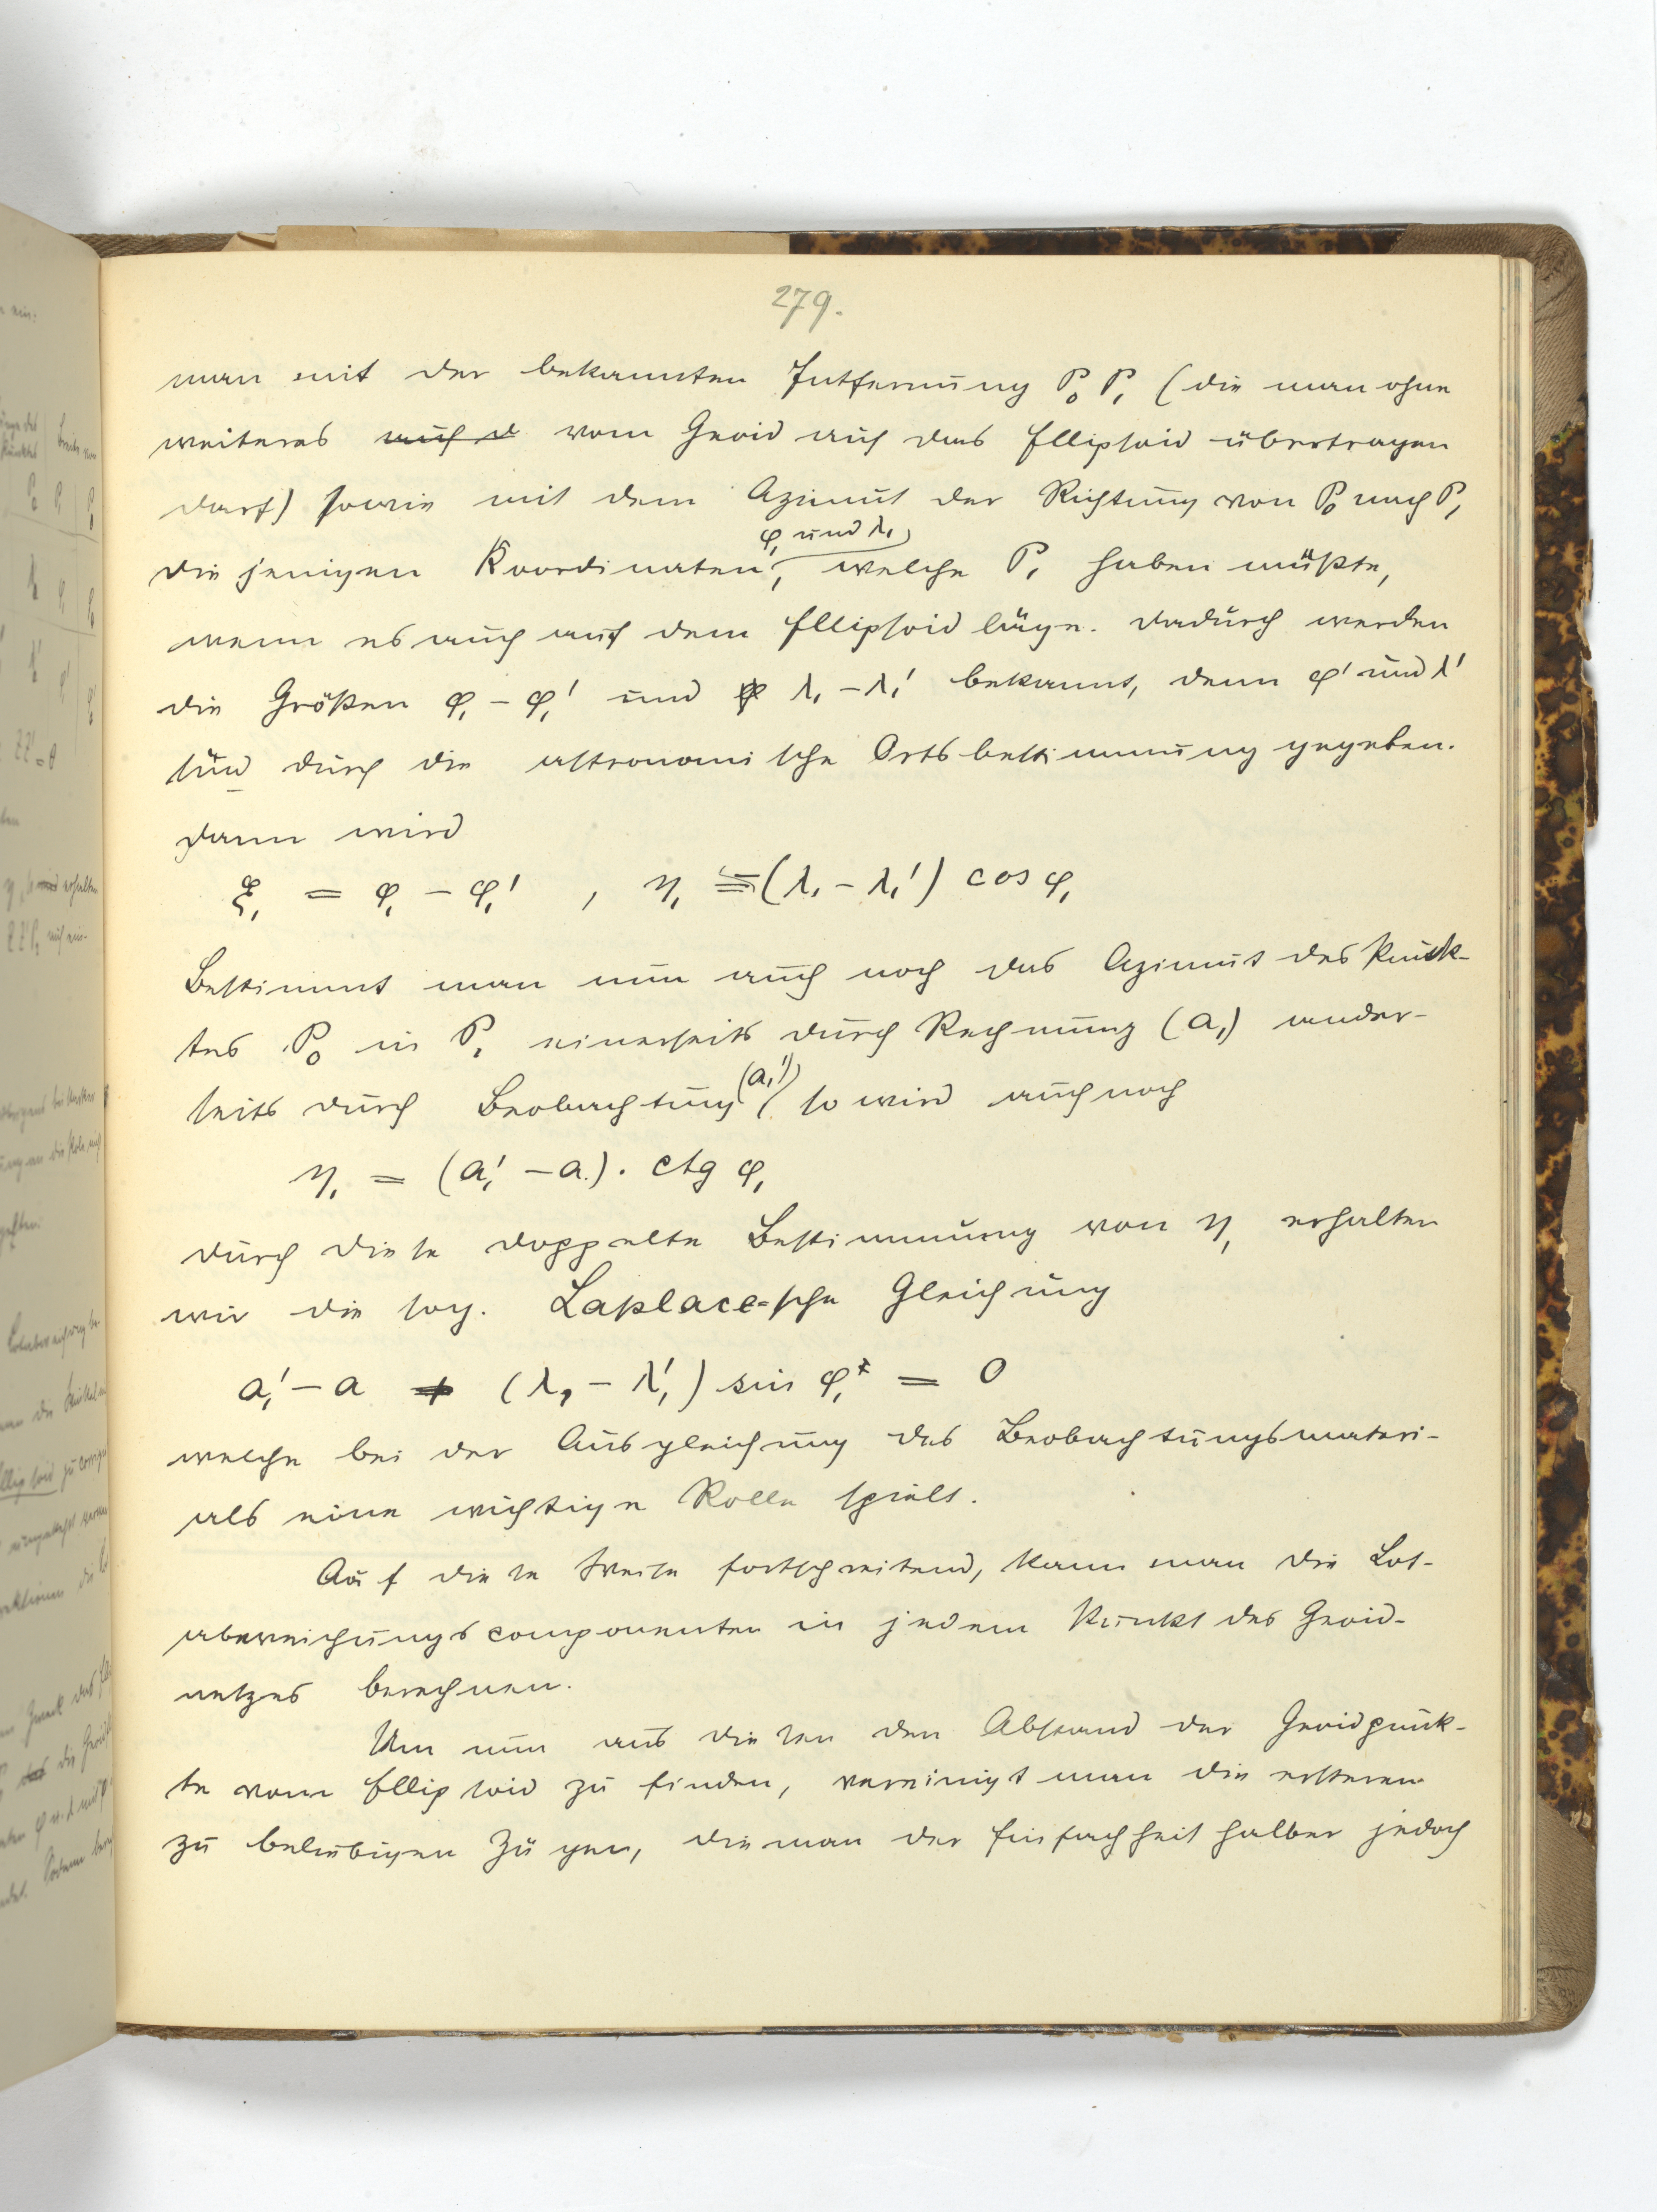 279.
man mit der bekannten Entfernung P₀ P₁ (die man ohne
weiteres auf d vom Geoid auf das Ellipsoid übertragen
darf) sowie mit dem Azimut der Richtung von P₀ nach P₁
die jenigen Koordinaten φ₁ und λ₁, welche P₁ haben müßte,
wenn es auch auf dem Ellipsoid läge. Dadurch werden
die Größen φ₁ – φ₁' und φ λ₁ – λ₁' bekannt, denn φ' und λ'
sind durch die astronomische Ortsbestimmung gegeben.
Dann wird
ξ₁ = φ₁ – φ₁' , η₁ = (λ₁ – λ₁') cos φ₁
Bestimmt man nun auch noch das Azimut des Punk-
tes P₀ in P₁ einerseits durch Rechnung (a₁) ander-
seits durch Beobachtung (a₁') so wird auch noch
η₁ = (a₁' – a₁). ctg φ₁
durch diese doppelte Bestimmung von η₁ erhalten
wir die sog. Laplace=sche Gleichung
a₁' – a + (λ₁ – λ₁') sin φ₁ = 0
welche bei der Ausgleichung des Beobachtungsmateri-
als eine wichtige Rolle spielt.
Auf diese Weise fortschreitend, kann man die Lot-
abweichungscomponenten in jedem Punkt des Geoid-
netzes berechnen.
Um nun aus diesen den Abstand der Geoidpunk-
te vom Ellipsoid zu finden, vereinigt man die ersteren
zu beliebigen Zügen, die man der Einfachheit halber jedoch